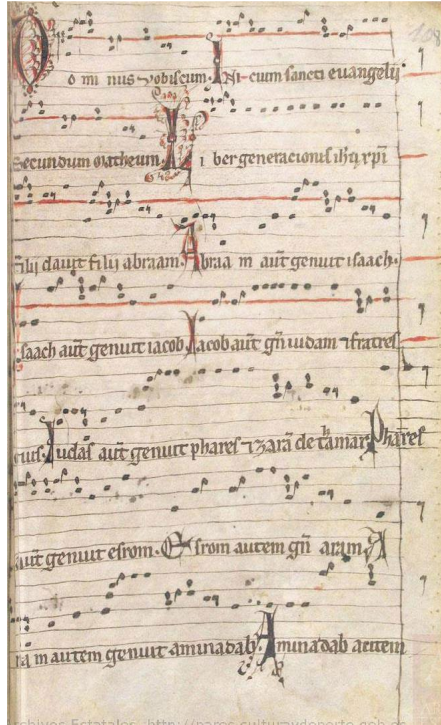 Dominus vobiscum. Inicium sancti euangelii
Secundum matheum. Liber generacionis ihu xpi
filii dauit filii abraam. Abraam aut genuit isaach.
Isaach aut genuit iacob. Iacob aut gn iudam ⁊ fratres
eius. Iudas aut genuit phares ⁊ zara de thamar. Phares
aut genuit esrom. Esrom autem gn aram. A
ram autem genuit aminadab. Aminadab autem